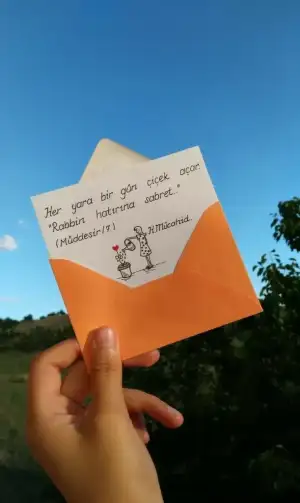 Her yara bir gün çiçek açar.
"Rabbin hatırına sabret.."
(Müddesir/7)
H.Mücahid.